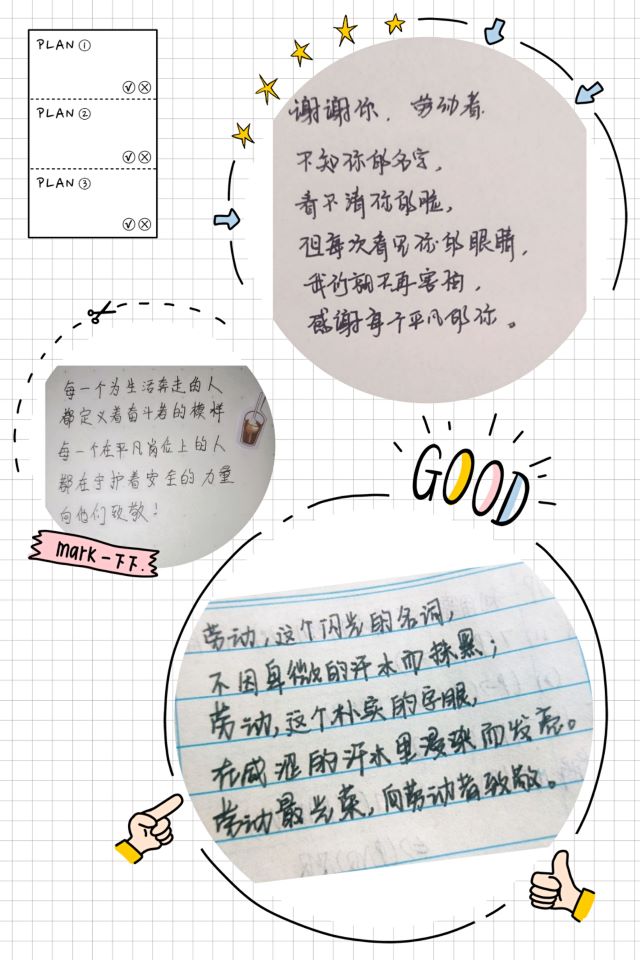 PLAN ①
PLAN ②
PLAN ③
谢谢你，劳动者
不知你的名字，
看不清你的脸，
但每次看见你的眼睛，
我们就不再害怕，
感谢每个平凡的你。
每一个为生活奔走的人
都定义着奋斗者的模样
每一个在平凡岗位上的人
都在守护着安全的力量
向他们致敬！
mark一下下.
GOOD
劳动，这个闪光的名词，
不因卑微的汗水而抹黑；
劳动，这个朴实的字眼，
在咸涩的汗水里浸染而发亮。
劳动最光荣，向劳动者致敬。